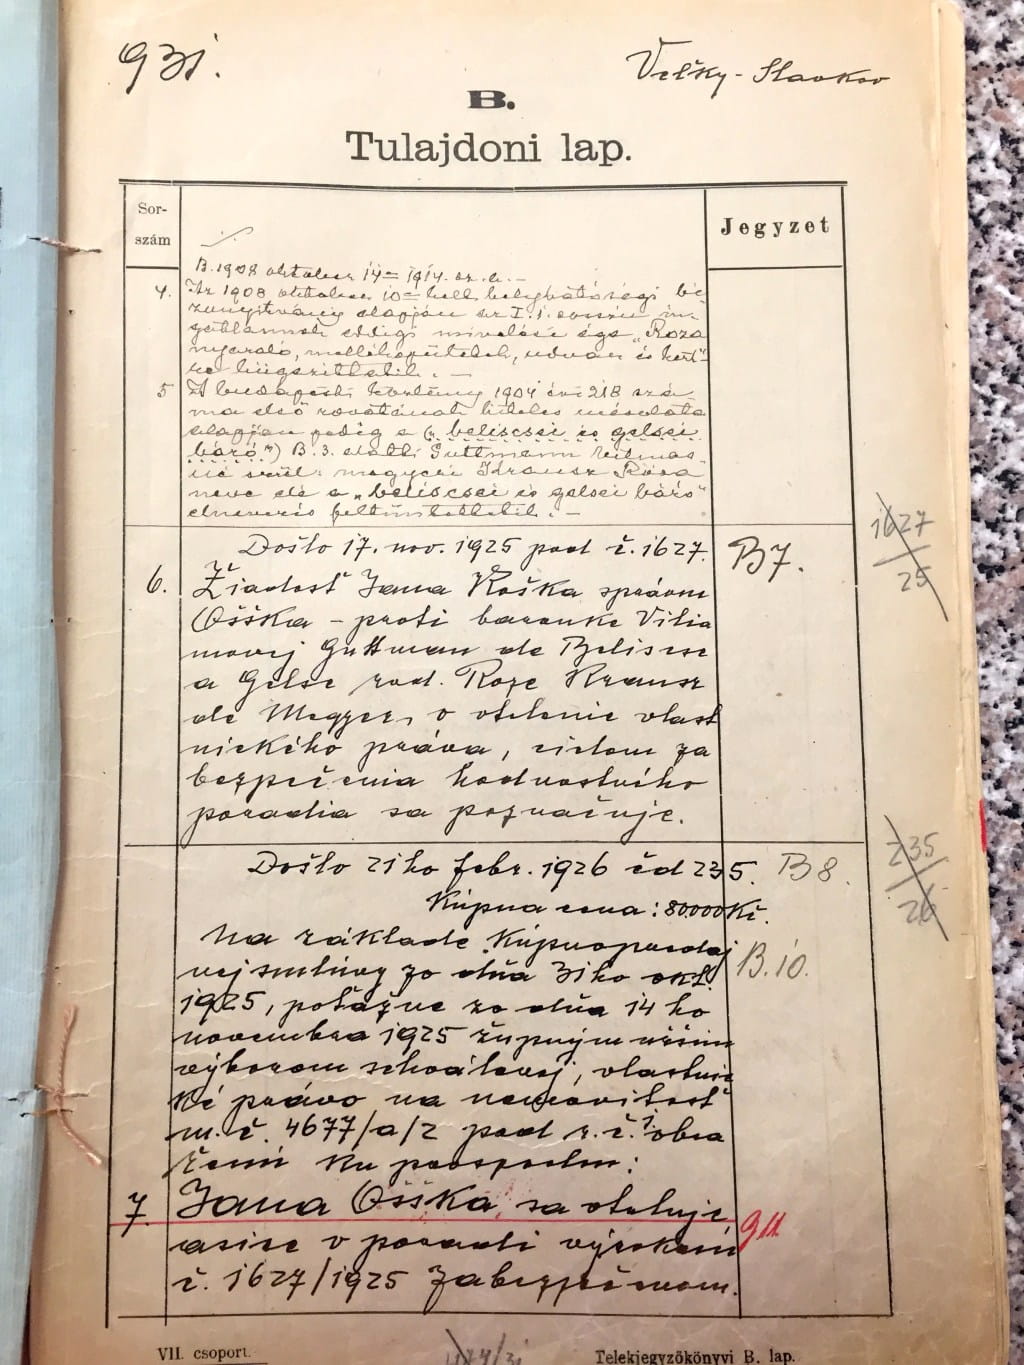 931.
Veľký-Slavkov
B.
Tulajdoni lap.
Sor-
szám
Jegyzet
B. 1908 október 14 = 1914. sz. é. -
4. Az 1908 október 10 = kelt helyhatósági bi-
zonyitvány alapján az I. 1. sorszámu in-
gatlannak eddigi mivelési ága „Roza
nyaraló, melléképületek, udvar és kert"-
re kiigazittatik. -
5 A budapesti közlöny 1904 évi 218 szá-
ma első rovatának hiteles másolata
alapján pedig a („beliscsei és gelsei
báró") B. 3. alatti Guttmann Vilmos-
né szül: magyeri Krausz Róza
neve elé a „beliscsei és gelsei báró"
elnevezés feltüntettetik. -
Došlo 17. nov. 1925 pod č. 1627.
B7.
1627
25
6. Žiadosť Jana Koška správou
Ošška - proti baronke Vilia
movej Guttman de Belisese
a Gelse rod. Roze Krausz
de Megyer, o vtelenie vlast
nického práva, cielom za
bezpečenia hodnostního
poradia sa poznačuje.
Došlo 21ho febr. 1926 čd 235.
B8.
235
26
Kúpna cena: 80000 Kč.
Na základe kúpnopredaj
vej smluvy zo dňa 31ho okt.
B.10.
1925, poťažne zo dňa 14 ho
novembra 1925 župným užším
výborom schválenej, vlastnic
ké právo na nemovitosť
m.č. 4677/a/2 pod r.č. 1 obsa
ženú ku prospechu:
7. Jana Ošška, sa vteluje,
asice v poradí výsokom
č. 1627/1925 zabezpečenom.
VII. csoport.
Telekjegyzökönyvi B. lap.